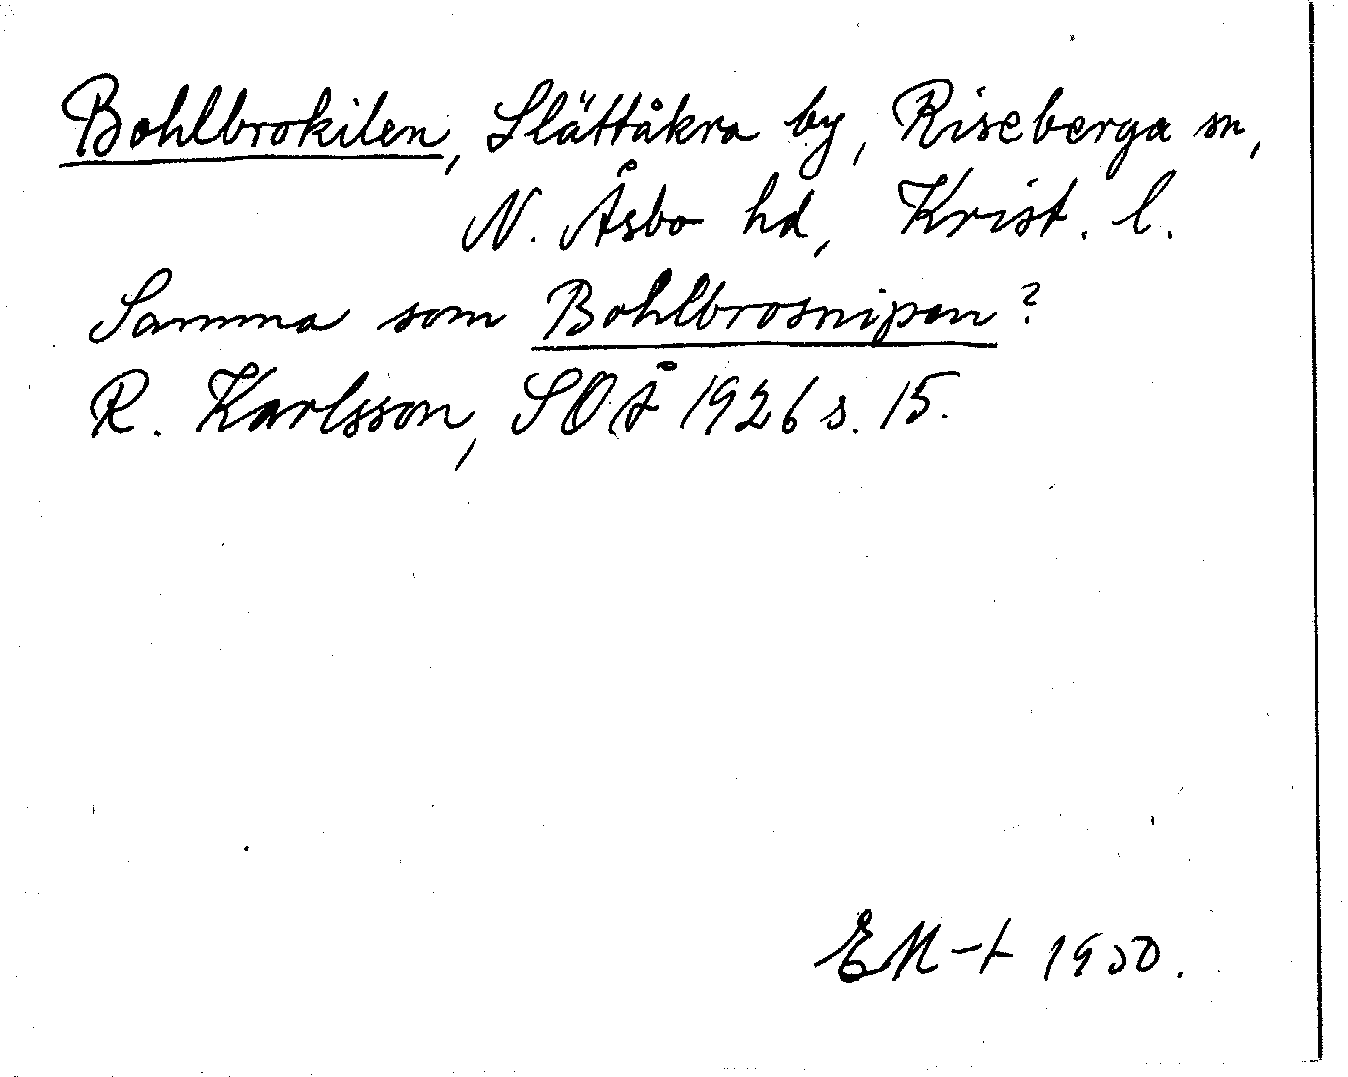 Bohlbrokilen, Slättåkra by, Riseberga sn,
N. Åsbo hd, Krist. l.
Samma som Bohlbrosnipen?
R. Karlsson, SOÅ 1926 s. 15.
EM-t 1950.